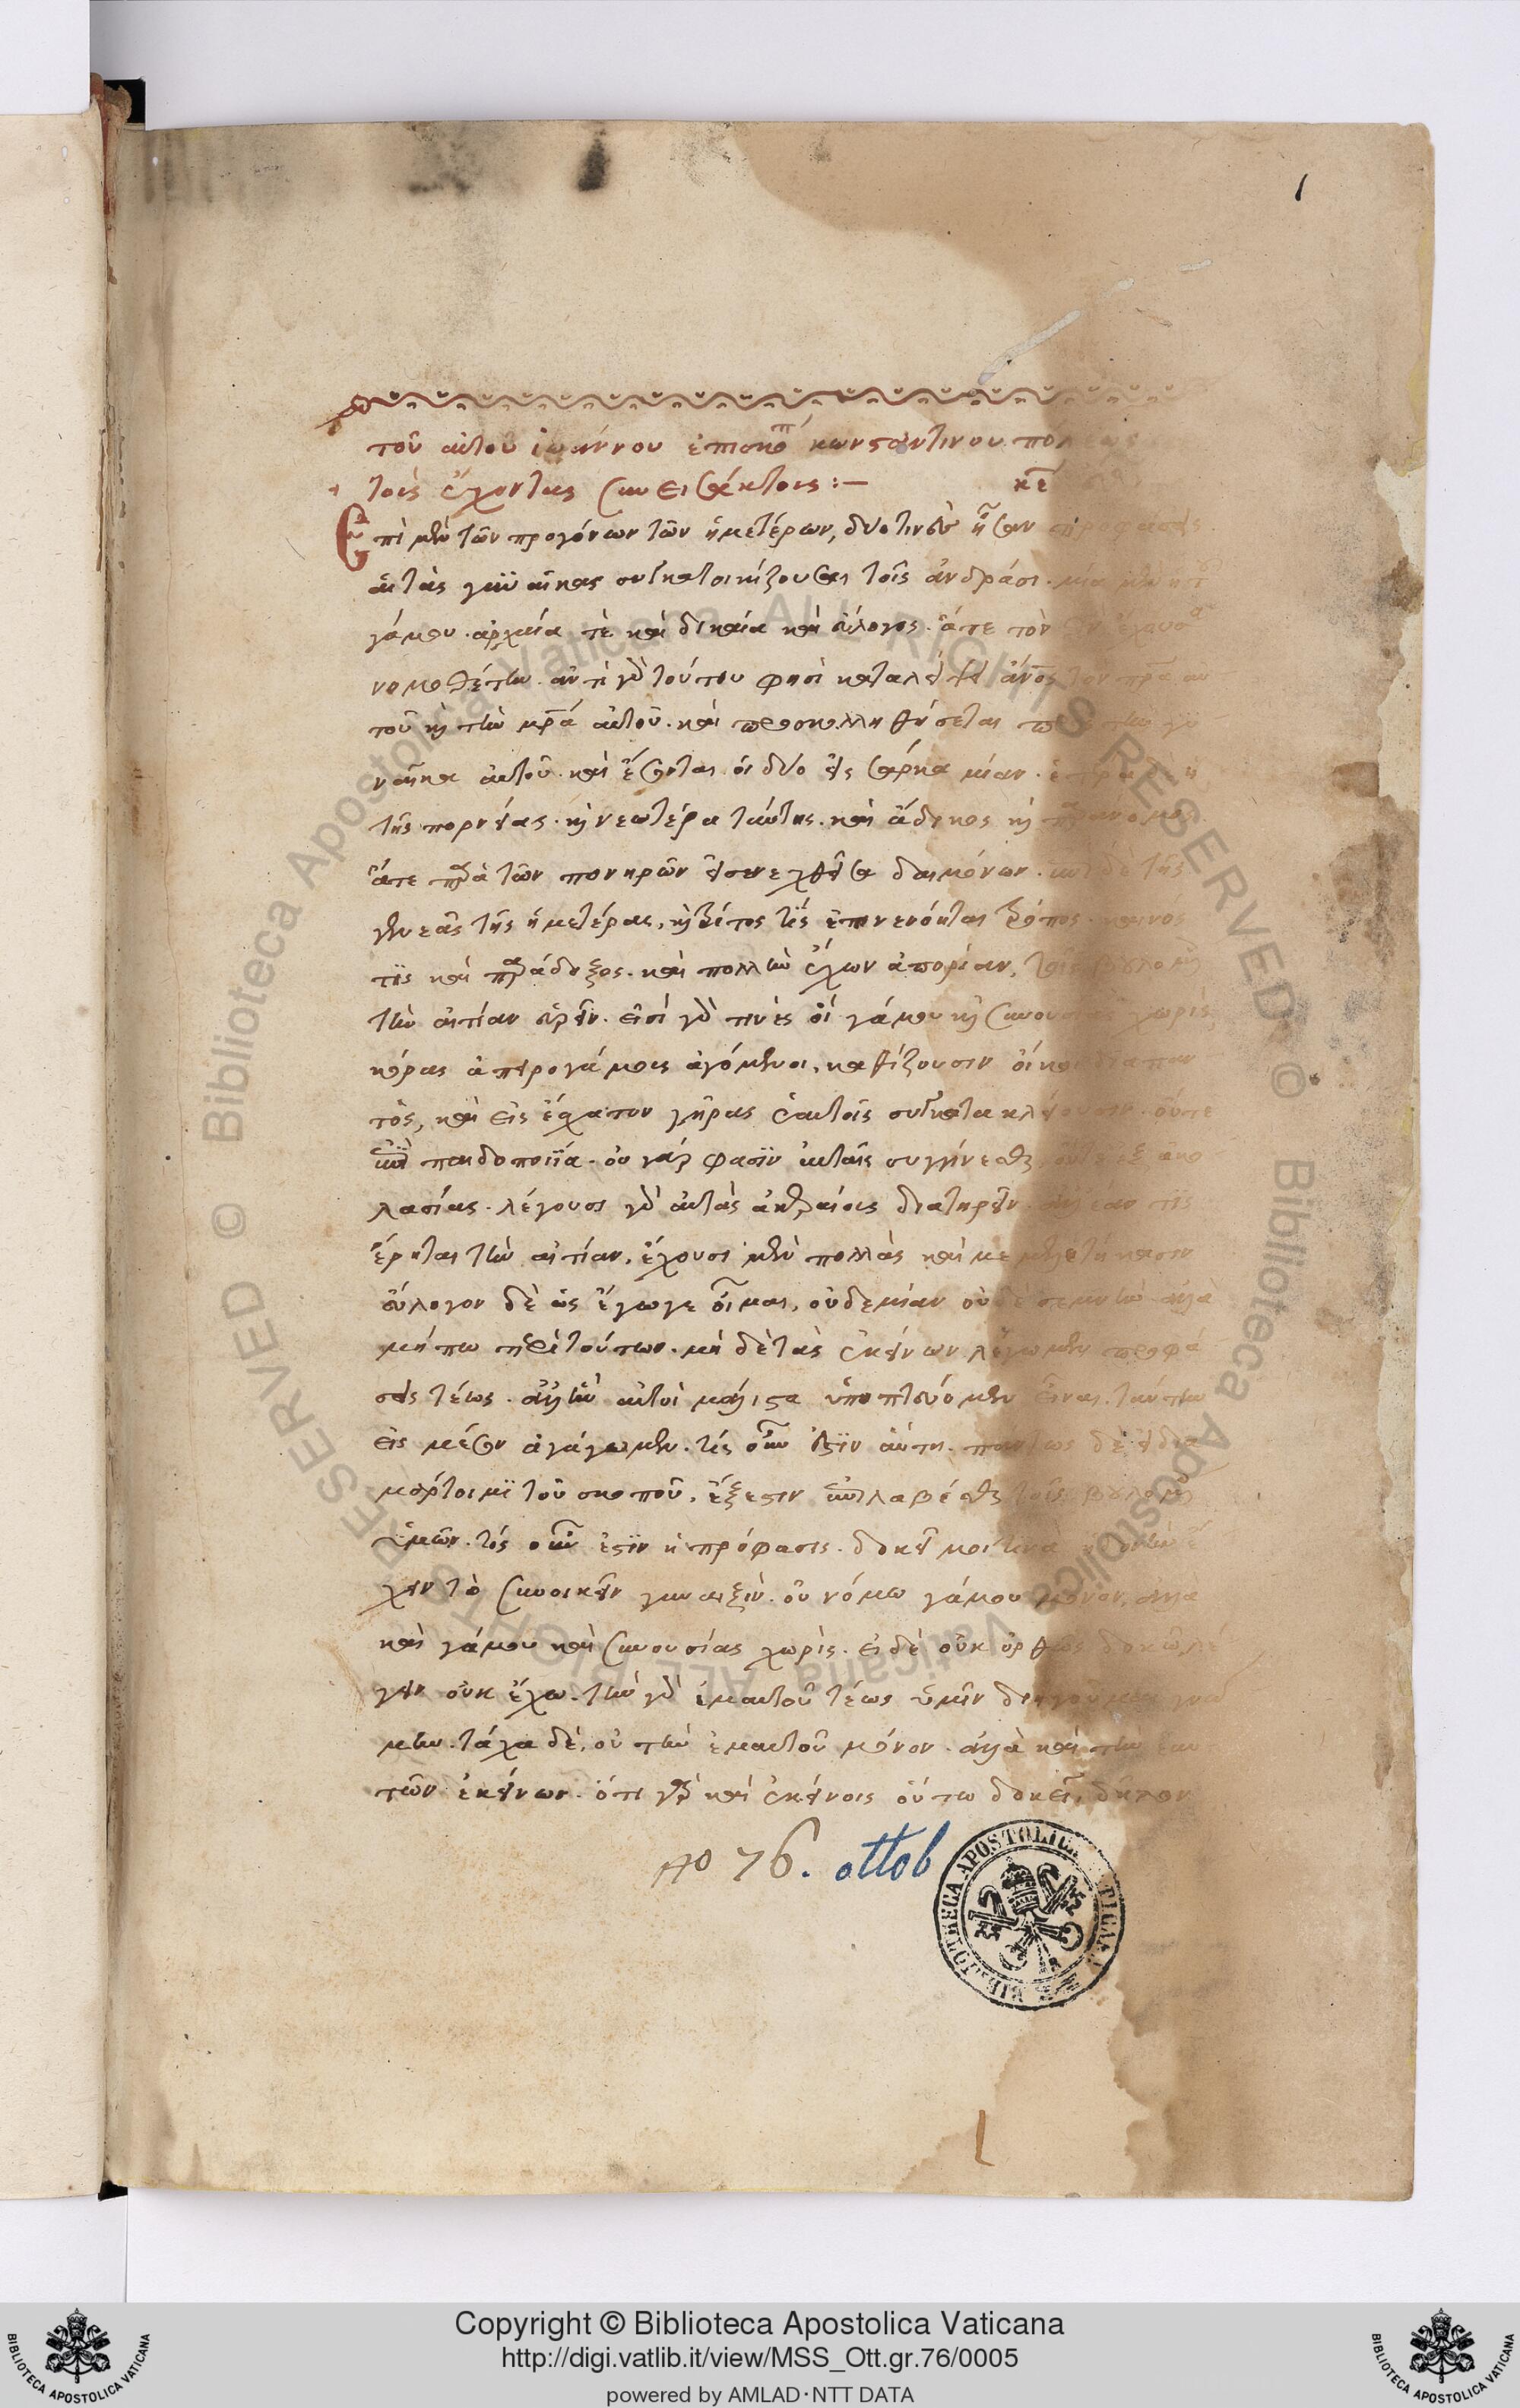 1
τοῦ αὐτοῦ ἰωάννου ἐπισκόπ κωνσταντίνου πόλεως
τοὺς ἔχοντας συνεισάκτους :—
Ἐπὶ μὲν τῶν προγόνων τῶν ἡμετέρων, δύο τινὲς ἦσαν προφάσεις
αἱ τὰς γυναῖκας συγκατοικίζουσαι τοῖς ἀνδράσι. μία μὲν
γάμου. ἀρχαία τὲ καὶ δικαία καὶ εὔλογος. ἅτε τὸν θν
νομοθέτην. ἀντὶ γὰρ τούτου φησὶ καταλείψει ἄνος τὸν πρα αὐ
τοῦ κὶ τὴν μρα αὐτοῦ. καὶ προσκολληθήσεται τὴν γυ
ναῖκα αὐτοῦ. καὶ ἔσονται οἱ δύο εἰς σάρκα μίαν. ἑτέρα
τῆς πορνείας. κὶ νεωτέρα ταύτης. καὶ ἄδικος κὶ παράνομος
ἅτε παρὰ τῶν πονηρῶν εἰσενεχθεῖσα δαιμόνων. δὲ τῆς
γενεᾶς τῆς ἡμετέρας, κὶ τρίτος τίς ἐπινενόηται τρόπος. καινός
τίς καὶ παράδοξος. καὶ πολλὴν ἔχων ἀπορίαν,
τὴν αἰτίαν εὑρεῖν. εἰσὶ γὰρ τινὲς οἳ γάμου κὶ συνουσίας χωρὶς
κόρας ἀπειρογάμους ἀγόμενοι, καθίζουσιν οἴκοι διαπαν
τὸς, καὶ εἰς ἔσχατον γῆρας ἑαυτοῖς συγκατακλείουσιν. οὔτε
ἐπὶ παιδοποιΐα. οὐ γάρ φασῒν αὐταῖς συγγίνεσθαι, ἐξ ἀκο
λασίας. λέγουσι γὰρ αὐτὰς ἀκεραίους διατηρεῖν. τις
ἔρηται τὴν αἰτίαν, ἔχουσι μὲν πολλὰς καὶ μεμελετήκασιν
εὔλογον δὲ ὡς ἔγωγε οἶμαι, οὐδεμίαν οὐδὲ σεμνὴν. ἀλλὰ
μήπω περὶ τούτων. μὴ δὲ τὰς ἐκείνων λέγωμεν προφά
σεις τέως. ἀλλ' ἣν αὐτοὶ μάλιστα ὑποπτεύομεν εἶναι. ταύτην
εἰς μέσον ἀγάγωμεν. τίς οὖν ἐστῒν αὕτη. πάντως δὲ εἰ δια
μάρτοιμϊ τοῦ σκοποῦ, ἔξεστιν ἐπιλαβέσθαι τοῖς βουλομέν
ὑμῶν. τίς οὖν ἐστῒν ἡ πρόφασις. δοκεῖ μοί τινὰ ἡδονὴν ἔ
χειν τὸ συνοικεῖν γυναιξὶν. οὐ νόμω γάμου μόνον, ἀλλὰ
καὶ γάμου καὶ συνουσίας χωρίς. εἰ δὲ οὐκ ὀρθῶς δοκῶ, λέ
γειν οὐκ ἔχω. τὴν γὰρ ἐμαυτοῦ τέως ὑμῖν διηγοῦμαι γνώ
μην. τάχα δέ, οὐ τὴν ἐμαυτοῦ μόνον. ἀλλὰ καὶ τὴν αὐ
τῶν ἐκείνων. ὅτι γὰρ καὶ ἐκείνοις οὕτω δοκεῖ, δῆλον
no 76. ottob
BIBLIOTHECA APOSTOLICA VATICANA
Biblioteca Apostolica Vaticana ALL RIGHTS RESERVED ©
Biblioteca Apostolica Vaticana ALL RIGHTS RESERVED ©
Copyright © Biblioteca Apostolica Vaticana
http://digi.vatlib.it/view/MSS_Ott.gr.76/0005
powered by AMLAD·NTT DATA
BIBLIOTECA APOSTOLICA VATICANA
BIBLIOTECA APOSTOLICA VATICANA